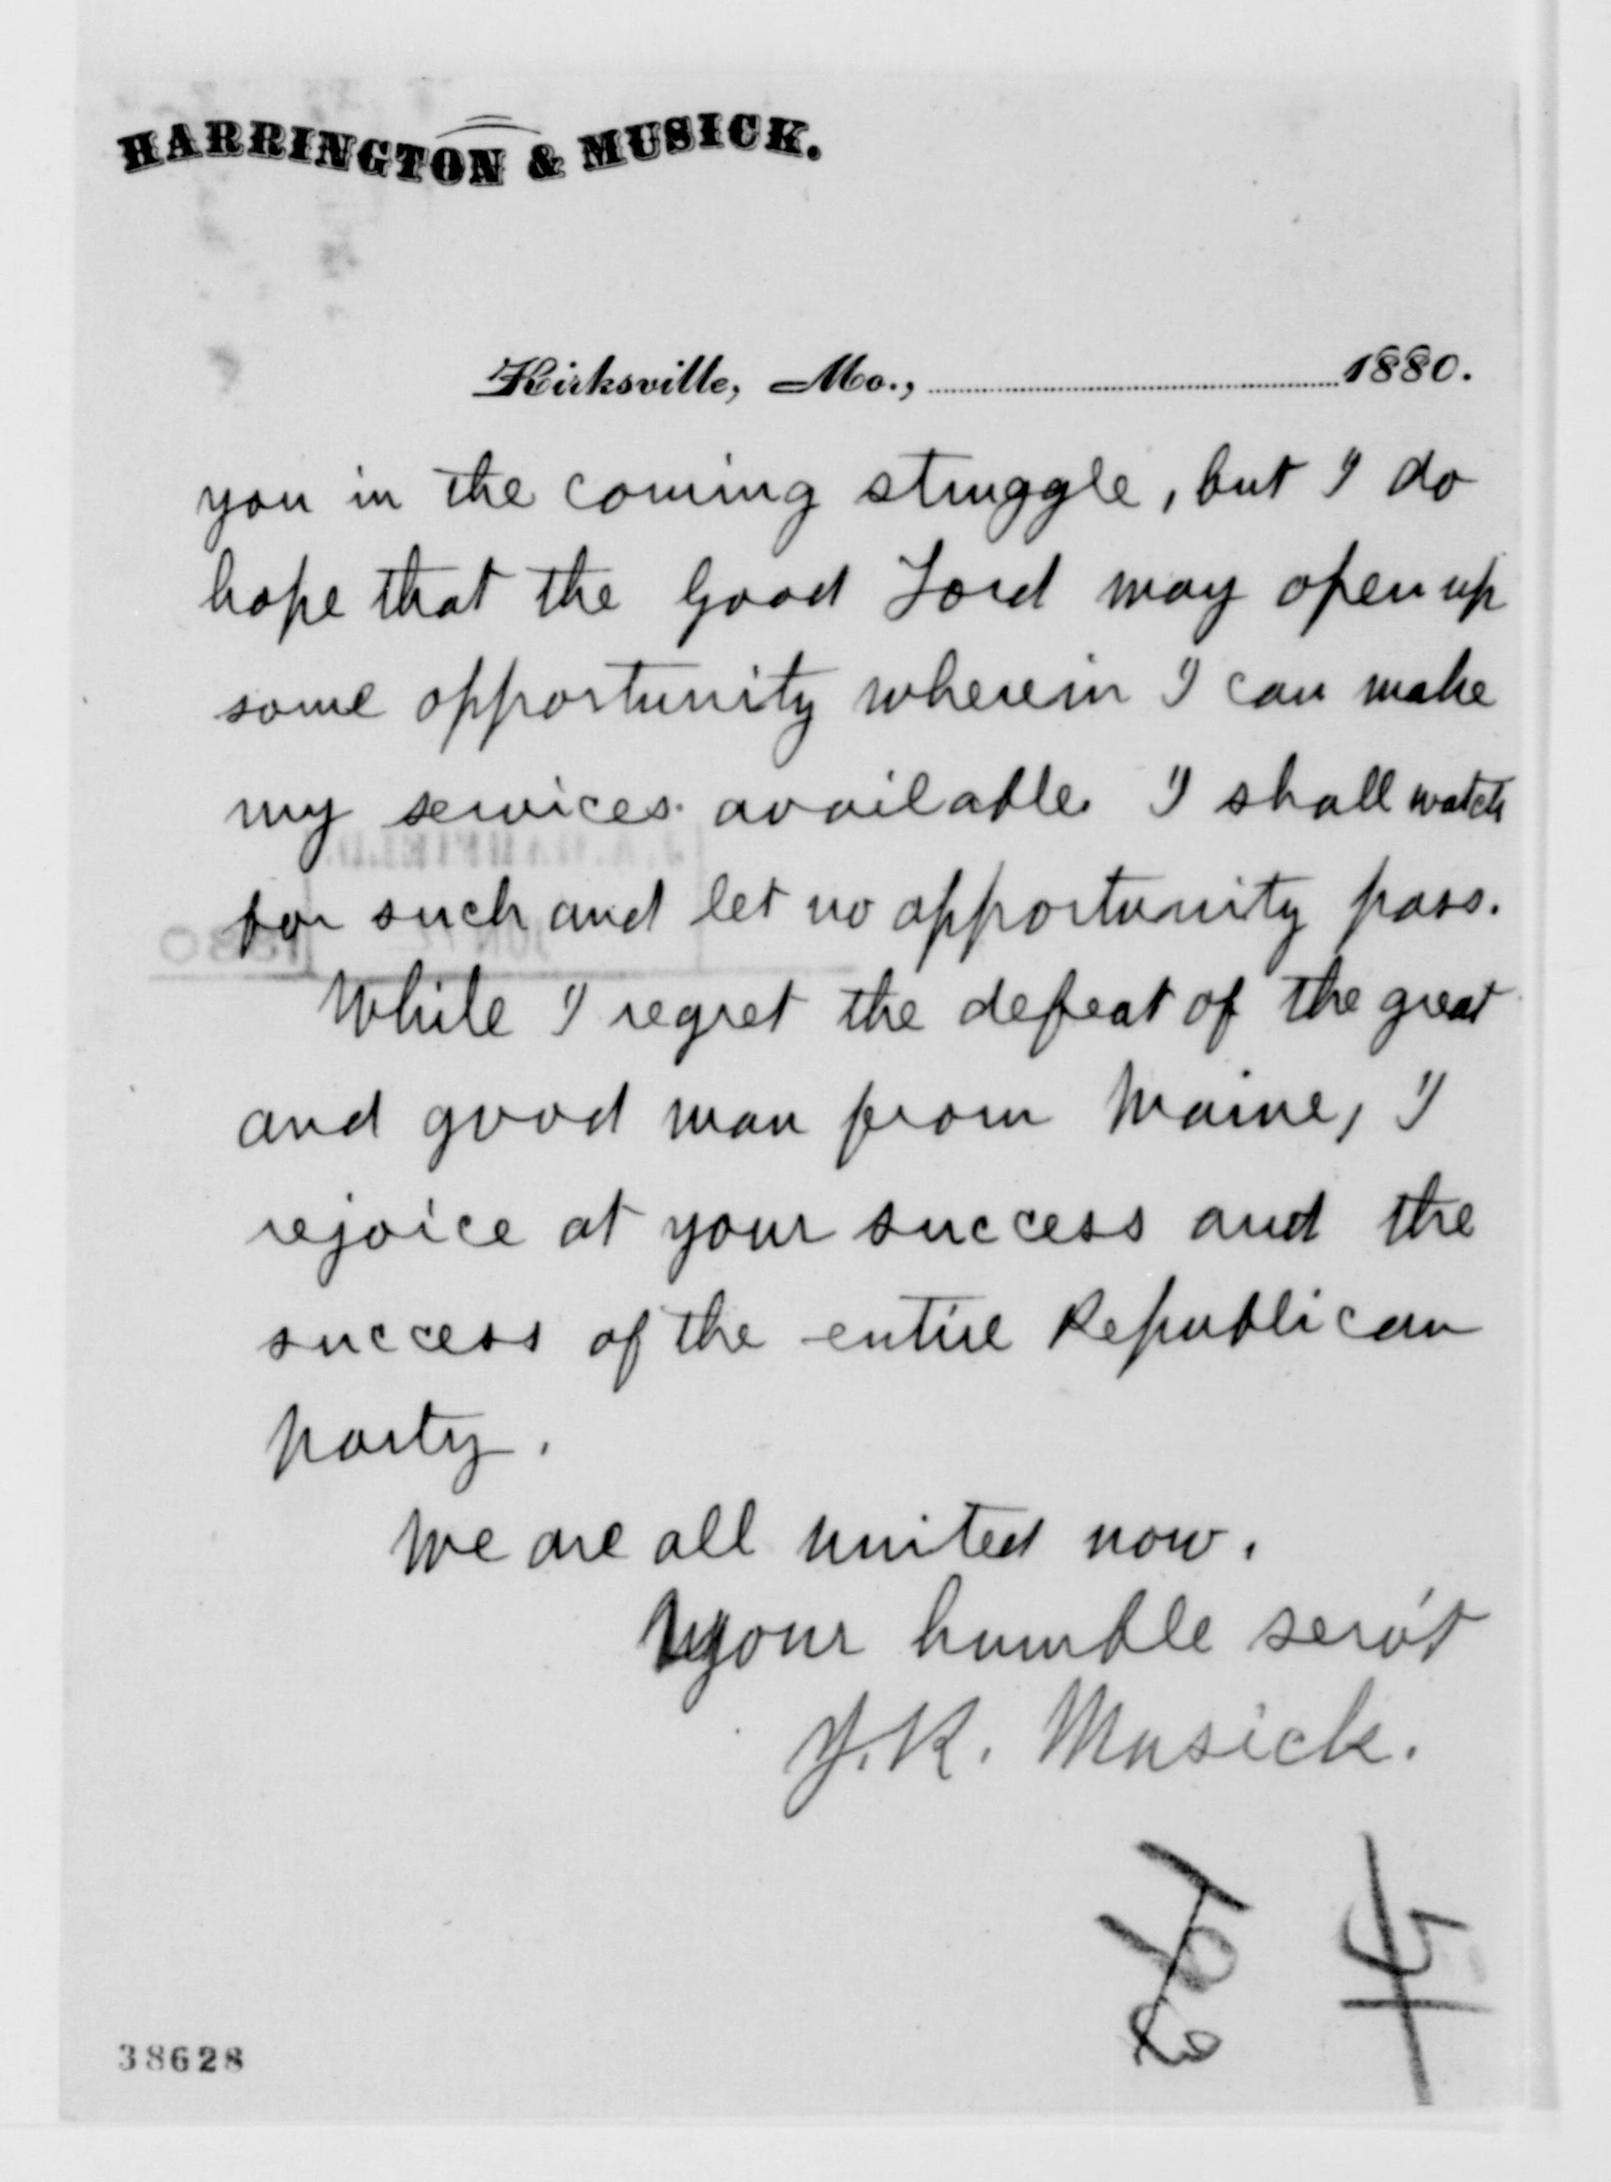 HARRINGTON & MUSICK.
Kirksville, Mo., 1880.
you in the coming struggle, but I do
hope that the Good Lord may open up
some opportunity wherein I can make
my services available. I shall watch
for such and let no opportunity pass.
While I regret the defeat of the great
and good man from Maine, I
rejoice at your success and the
success of the entire Republican
party.
We are all united now.
your humble serv't
J.K. Musick.
38628